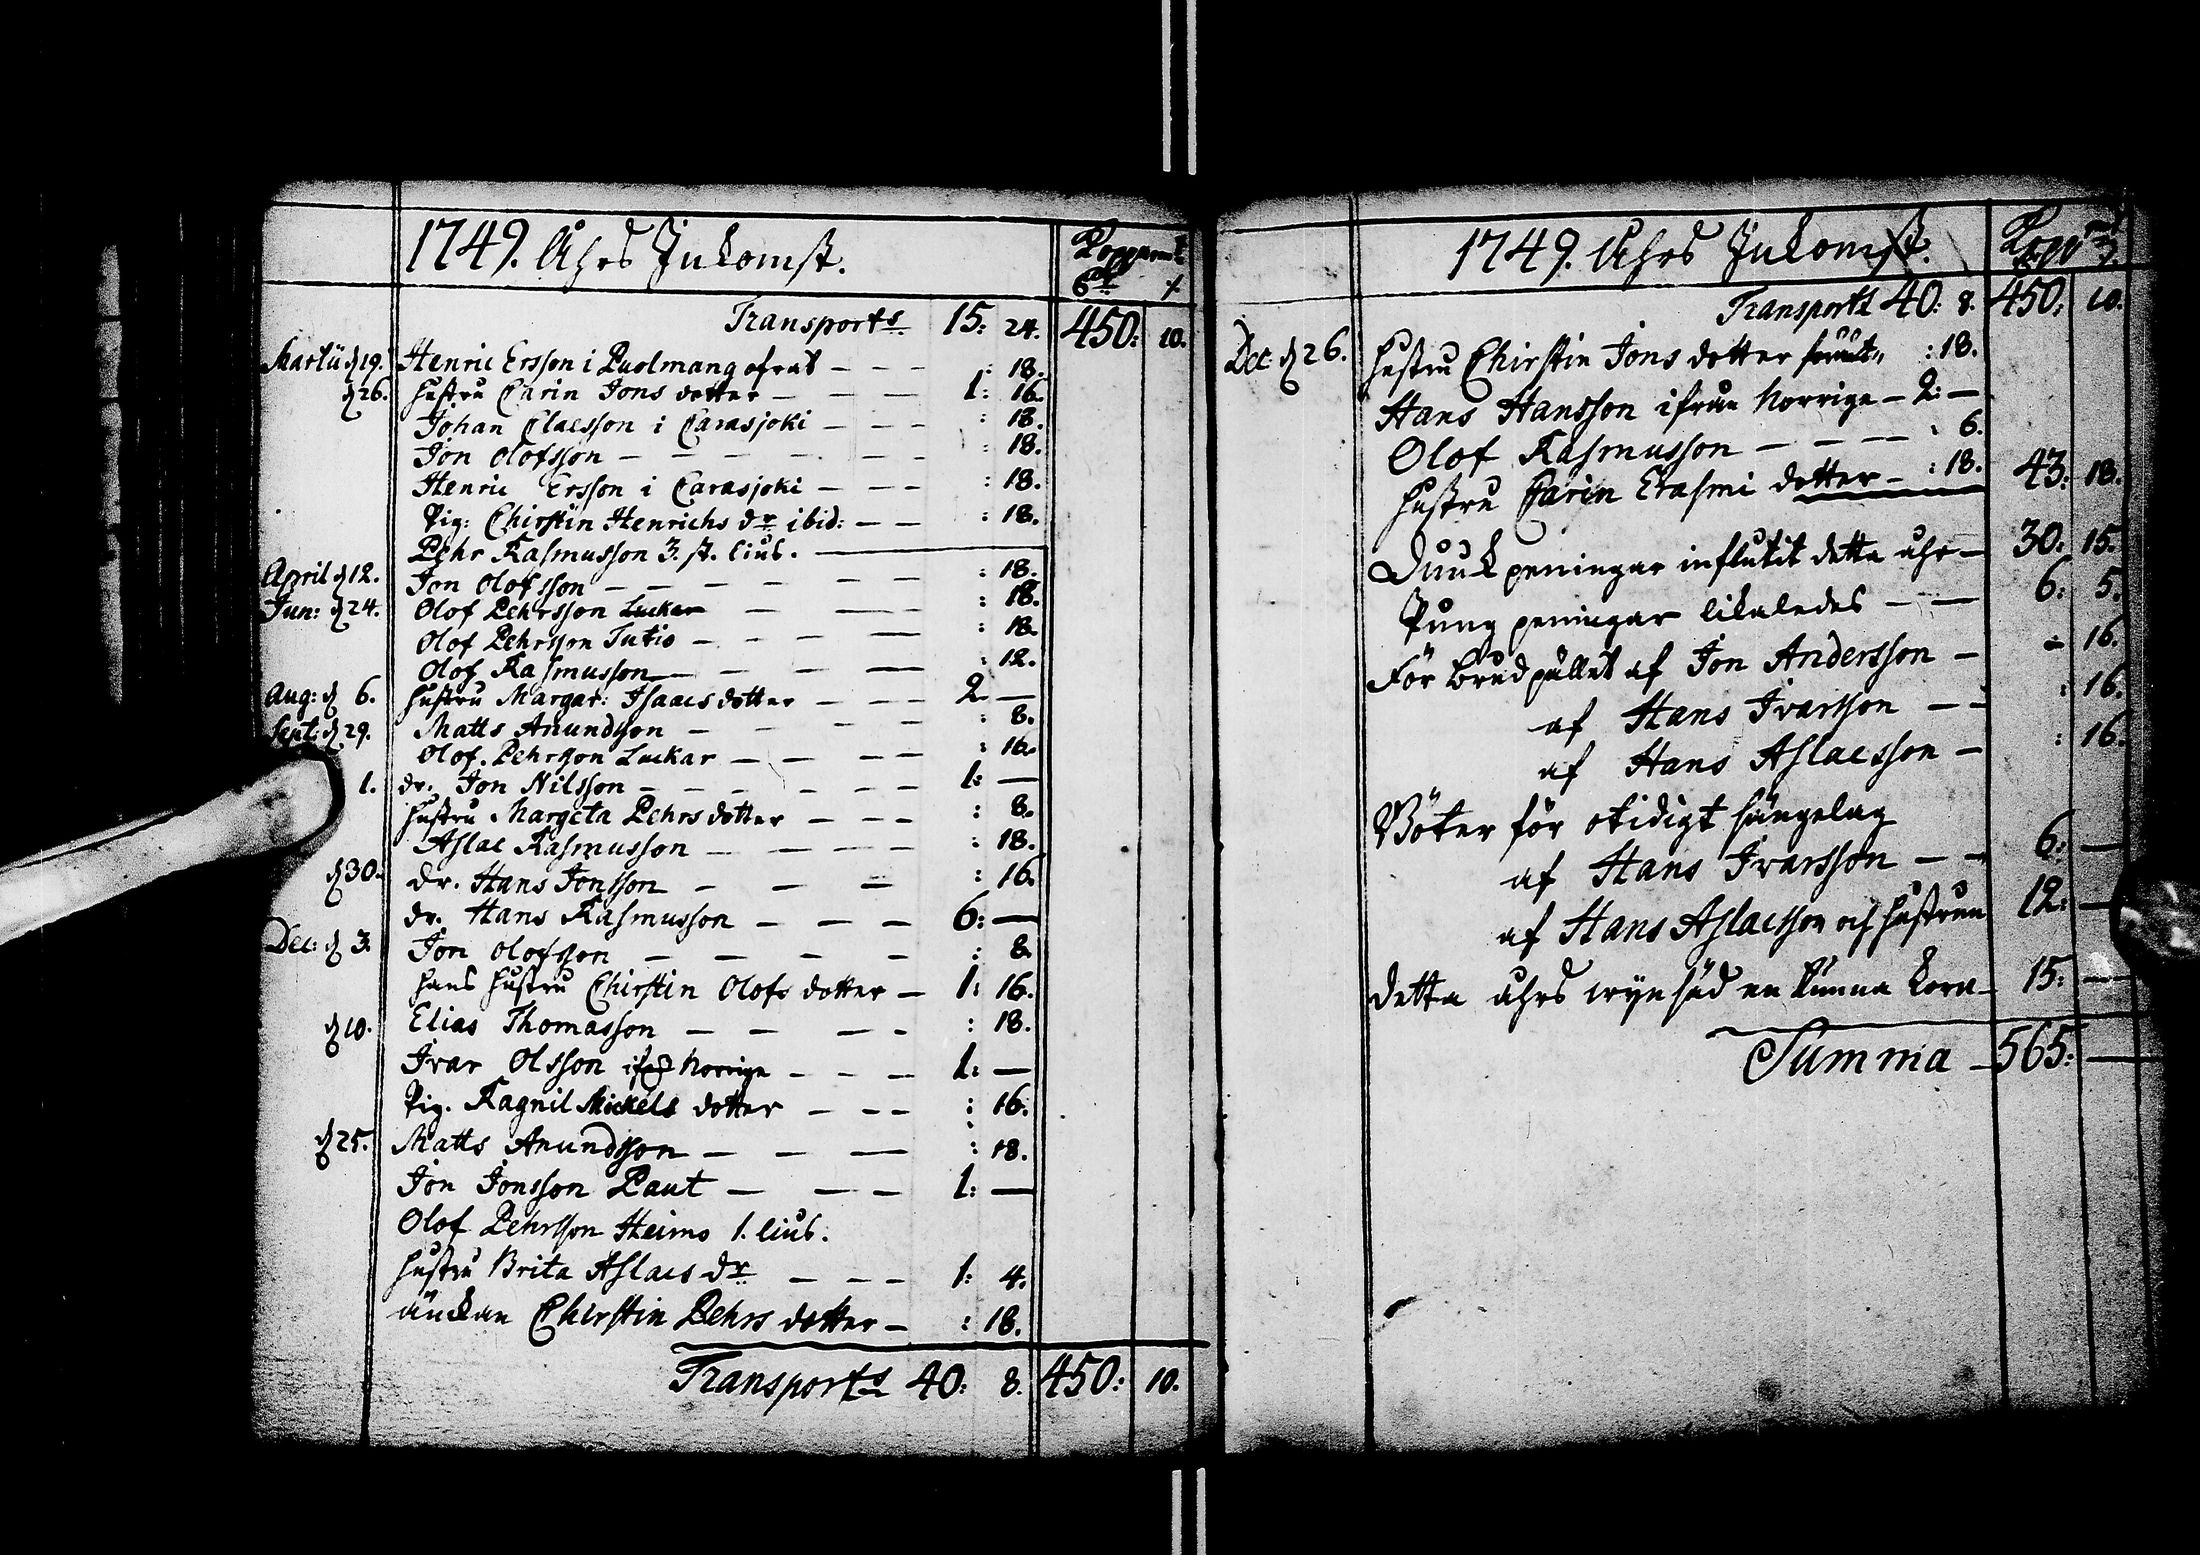 1749. Åhrs Inkomst. Kopparmt
6dr /.
Transports. 15: 24. 450: 10.
Martii d 19. Henric Ersson i Puolmang ofrat - - - : 18.
d 26. hustru Carin Jons dotter - - - 1: 16.
Johan Claesson i Carasjoki - - - : 18.
Jon Olofsson - - - - - - : 18.
Henric Ersson i Carasjoki - - - : 18.
Pig: Chirstin Henrichs dr ibid: - - : 18.
Pehr Rasmusson 3. st. lius. -
April d 12. Jon Olofsson - - - - - - : 18.
Jun: d 24. Olof Pehrsson Luckar - - - : 18.
Olof Pehrsson Tutio - - - - : 18.
Olof Rasmusson - - - - : 12.
Aug: d 6. hustru Margar: Isaacs dotter - - - 2 -
Sept: d 29. Matts Amundsson - - - - - : 8.
Olof. Pehrsson Luckar - - - - : 16.
1. dr. Jon Nilsson - - - - - - 1: -
hustru Margeta Pehrs dotter - - - : 8.
Aslac Rasmusson - - - - - : 18.
d 30. dr. Hans Jonsson - - - : 16.
dr. Hans Rasmusson - - - - 6: -
Dec: d 3. Jon Olofsson - - - - : 8.
hans hustru Chirstin Olofs dotter - 1: 16.
d 10. Elias Thomasson - - - - : 18.
Ivar Olsson ifrå Norrige - - - 1: -
Pig. Ragnil Mickels dotter - - - : 16.
d 25. Matts Amundsson - - - : 18.
Jon Jonsson Paut - - - 1: -
Olof Pehrsson Heimo 1. lius.
hustru Brita Aslacs dr - - - 1: 4.
änckan Chirstin Pehrs dotter - : 18.
Transports 40: 8. 450: 10.
1749. Åhrs Inkomst.
Transports 40: 8. 450: 10.
Dec d 26. hustru Chirstin Jons dotter : 18.
Hans Hansson ifrån Norrige - 2: -
Olof Rasmusson - - - - : 6.
hustru Carin Erasmi dotter - : 18. 43: 18.
peningar influtit detta åhr - 30: 15.
Pung peningar likaledes - - 6: 5.
För brudpället af Jon Andersson - : 16.
af Hans Ivarsson - - : 16.
af Hans Aslacsson - : 16.
Böter för otidigt sängelag
af Hans Ivarsson - - 6: -
af Hans Aslacsson och hustrun 12: -
detta åhrs wijnsäd en tunna korn - 15: -
Summa - 565: -